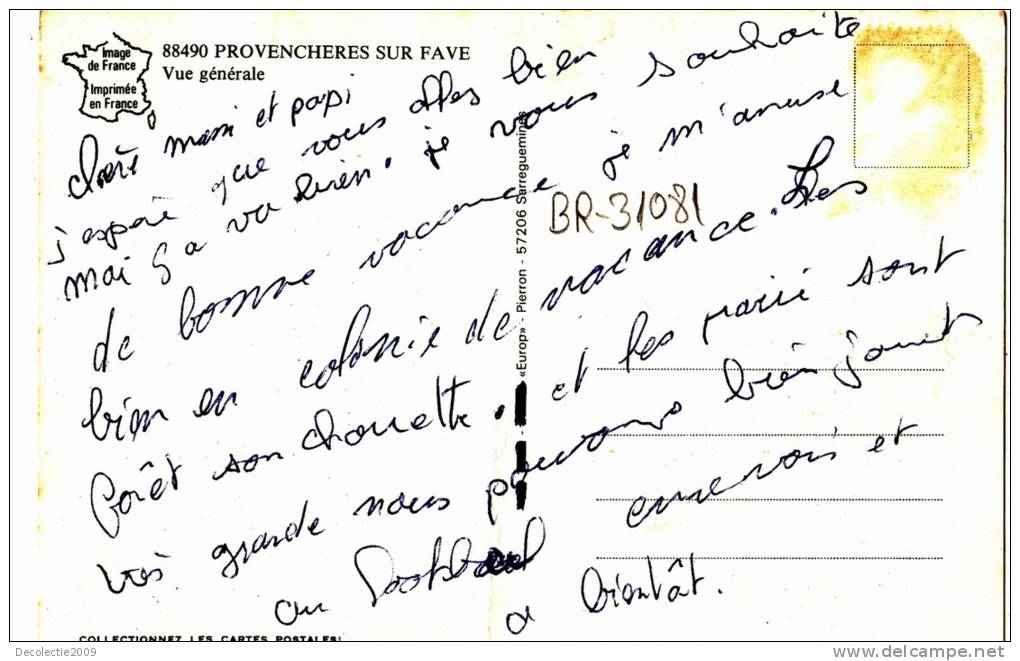 Image
de France
Imprimée
en France
88490 PROVENCHERES SUR FAVE
Vue générale
chère mami et papi
j'espère que vous alles bien
mai ça va bien. je vous souhaite
de bonne vacance je m'amuse
bien en colonie de vacance. Les
forêt son chouette. et les prairie sont
très grande nous pouvons bien jouet
au football enrevois et
a bientôt.
BR-31081
«Europ» - Pierron - 57206 Sarreguemines
COLLECTIONNEZ LES CARTES POSTALES!
Decolectie2009
delcampe.net